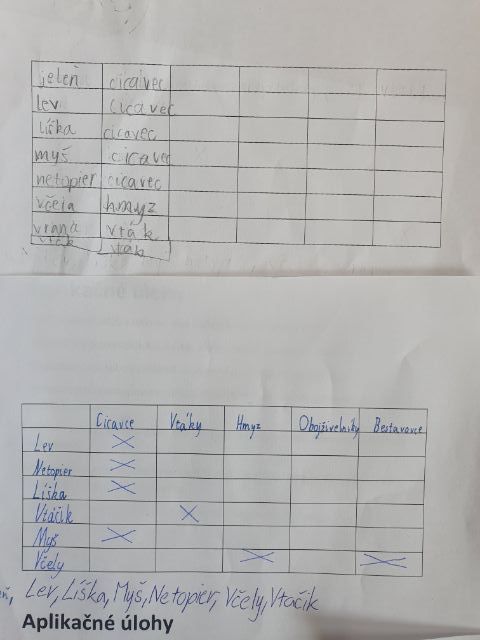 jeleň cicavec
lev cicavec
líška cicavec
myš cicavec
netopier cicavec
včela hmyz
vrana vták
vták vták
Cicavce Vtáky Hmyz Obojživelníky Bestavovce
Lev X
Netopier X
Líška X
Vtáčik X
Myš X
Včely X X
Lev, Líška, Myš, Netopier, Včely, Vtačik
Aplikačné úlohy